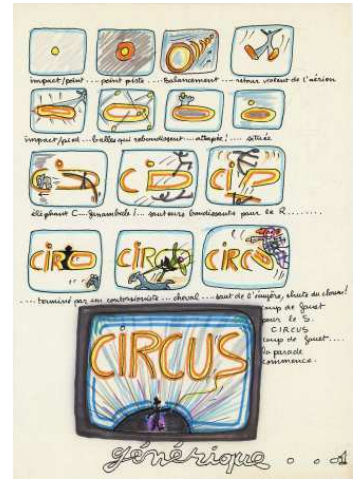 impact/point .... point piste .... balancement .... retour violent de l'aérien
impact/pied ... balles qui rebondissent ... attrapée! .... située
CI
CI
CIP
éléphant C .... funambule I ... sauteurs bondissants pour le R ........
CIRO
CIRC
CIRCU
.... terminé par un contorsionniste .. cheval .... saut de l'écuyère, chute du clown!
coup de fouet
pour le S.
CIRCUS
coup de fouet....
la parade
commence.
CIRCUS
générique
1